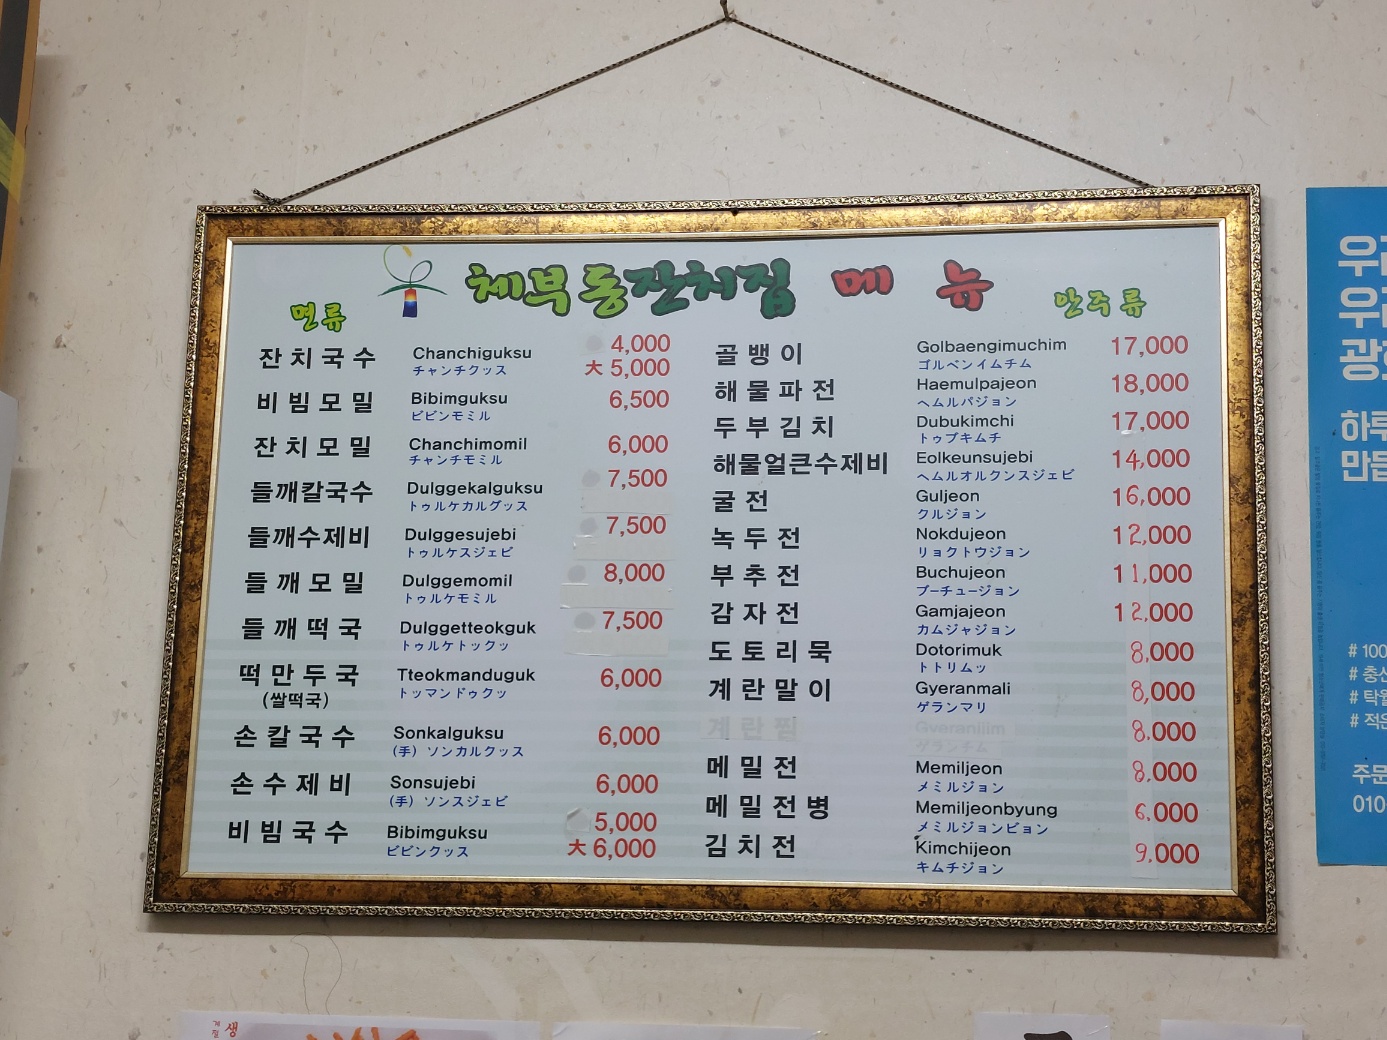 체부동잔치집 메 뉴
면류
잔치국수 Chanchiguksu 4,000
チャンチクッス 大 5,000
비빔모밀 Bibimguksu 6,500
ビビンモミル
잔치모밀 Chanchimomil 6,000
チャンチモミル
들깨칼국수 Dulggekalguksu 7,500
トゥルケカルグッス
들깨수제비 Dulggesujebi 7,500
トゥルケスジェビ
들깨모밀 Dulggemomil 8,000
トゥルケモミル
들깨떡국 Dulggetteokguk 7,500
トゥルケトックッ
떡만두국 Tteokmanduguk 6,000
(쌀떡국) トッマンドゥクッ
손칼국수 Sonkalguksu 6,000
(手) ソンカルクッス
손수제비 Sonsujebi 6,000
(手) ソンスジェビ
비빔국수 Bibimguksu 5,000
ビビンクッス 大 6,000
안주류
골뱅이 Golbaengimuchim 17,000
ゴルベンイムチム
해물파전 Haemulpajeon 18,000
ヘムルパジョン
두부김치 Dubukimchi 17,000
トゥブキムチ
해물얼큰수제비 Eolkeunsujebi 14,000
ヘムルオルクンスジェビ
굴전 Guljeon 16,000
クルジョン
녹두전 Nokdujeon 12,000
リョクトウジョン
부추전 Buchujeon 11,000
プーチュージョン
감자전 Gamjajeon 12,000
カムジャジョン
도토리묵 Dotorimuk 8,000
トトリムッ
계란말이 Gyeranmali 8,000
ゲランマリ
계란찜 Gyeranjjim 8.000
ゲランチム
메밀전 Memiljeon 8,000
メミルジョン
메밀전병 Memiljeonbyung 6,000
メミルジョンビョン
김치전 Kimchijeon 9.000
キムチジョン
하루
# 100
주문
010
생